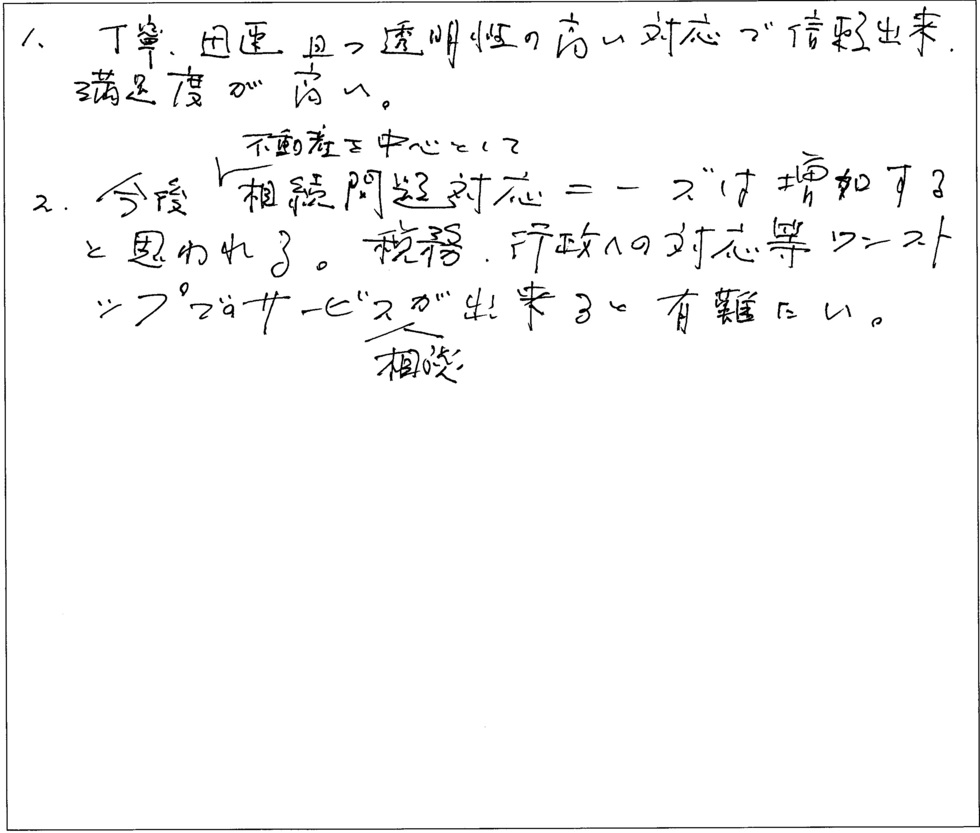 1. 丁寧、迅速且つ透明性の高い対応で信頼出来、
満足度が高い。
不動産を中心として
2. 今後相続問題対応ニーズは増加する
と思われる。税務、行政への対応等ワンスト
ップでのサービスが出来ると有難たい。
相談